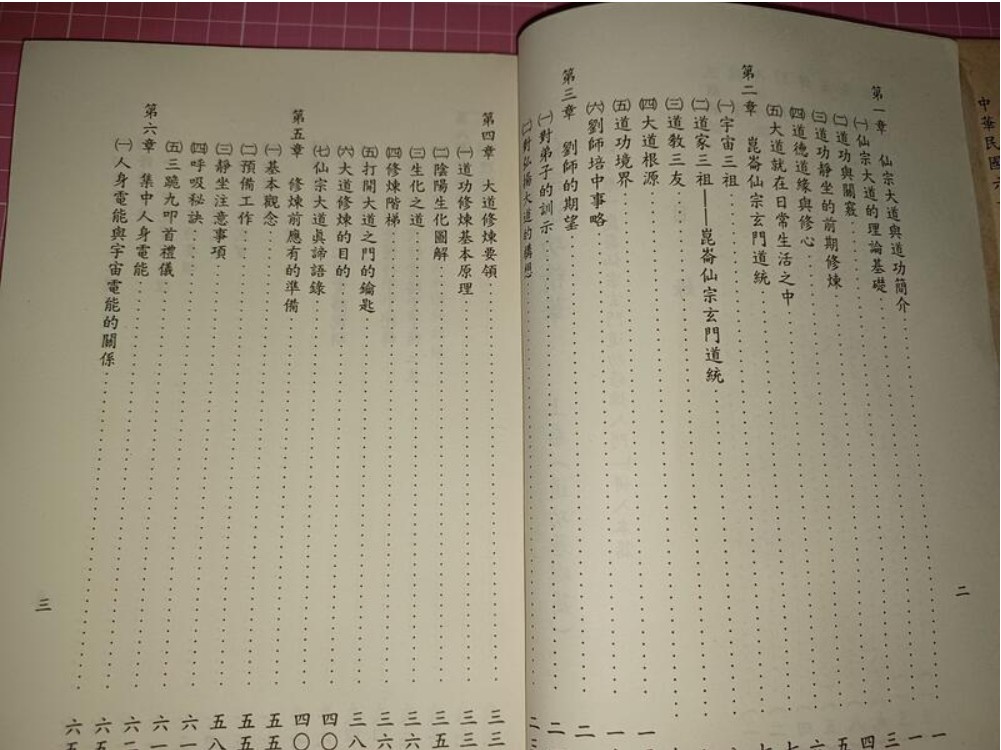 中華民國
第一章 仙宗大道與道功簡介
㈠仙宗大道的理論基礎
㈡道功與關竅
㈢道功靜坐的前期修煉
㈣道德道緣與修心
㈤大道就在日常生活之中
第二章 崑崙仙宗玄門道統
㈠宇宙三祖
㈡道家三祖——崑崙仙宗玄門道統
㈢道教三友
㈣大道根源
㈤道功境界
㈥劉師培中事略
第三章 劉師的期望
㈠對弟子的訓示
㈡對弘揚大道的構想
二
第四章 大道修煉要領 三三
㈠道功修煉基本原理 三三
㈡陰陽生化圖解 三五
㈢三生化之道 三六
㈣修煉階梯 三六
㈤打開大道之門的鑰匙 三八
㈥大道修煉的目的 四〇
㈦仙宗大道眞諦語錄 四〇
第五章 修煉前應有的準備 五五
㈠基本觀念 五五
㈡預備工作 五八
㈢靜坐注意事項 六一
㈣呼吸秘訣 六一
㈤三跪九叩首禮儀 六二
第六章 集中人身電能 六五
㈠人身電能與宇宙電能的關係 六五
三